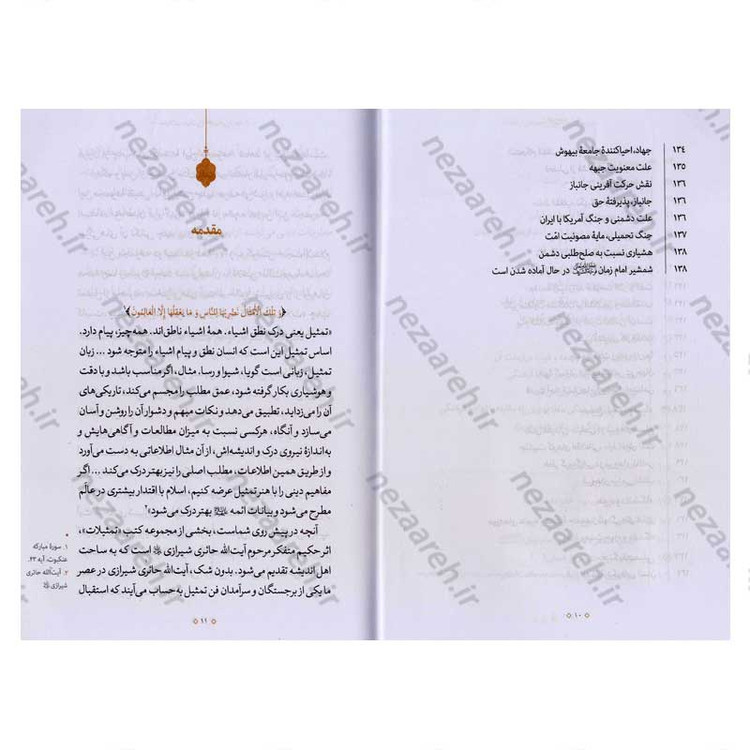 جهاد، احیاکنندهٔ جامعهٔ بیهوش ۱۳۴
علت معنویت جبهه ۱۳۵
نقش حرکت آفرینی جانباز ۱۳۶
جانباز، پذیرفتهٔ حق ۱۳۶
علت دشمنی و جنگ آمریکا با ایران ۱۳۶
جنگ تحمیلی، مایهٔ مصونیت امّت ۱۳۷
هشیاری نسبت به صلح‌طلبی دشمن ۱۳۸
شمشیر امام زمان در حال آماده شدن است ۱۳۸
۱۰
مقدمه
﴿وَ تِلْكَ الْأَمْثَالُ نَضْرِبُهَا لِلنَّاسِ وَ مَا يَعْقِلُهَا إِلَّا الْعَالِمُونَ﴾۱
«تمثیل یعنی درک نطق اشیاء. همهٔ اشیاء ناطق‌اند. همه‌چیز، پیام دارد.
اساس تمثیل این است که انسان نطق و پیام اشیاء را متوجه شود ... زبان
تمثیل، زبانی است گویا، شیوا و رسا. مثال، اگر مناسب باشد و با دقت
و هوشیاری بکار گرفته شود، عمق مطلب را مجسم می‌کند، تاریکی‌های
آن را می‌زداید، تطبیق می‌دهد و نکات مبهم و دشوار آن را روشن و آسان
می‌سازد و آنگاه، هرکسی نسبت به میزان مطالعات و آگاهی‌هایش و
به اندازهٔ نیروی درک و اندیشه‌اش، از آن مثال اطلاعاتی به دست می‌آورد
و از طریق همین اطلاعات، مطلب اصلی را نیز بهتر درک می‌کند ... اگر
مفاهیم دینی را با هنر تمثیل عرضه کنیم، اسلام با اقتدار بیشتری در عالَم
مطرح می‌شود و بیانات ائمه بهتر درک می‌شود»۲
آنچه در پیش روی شماست، بخشی از مجموعه کتب «تمثیلات»،
اثر حکیم متفکر مرحوم آیت‌الله حائری شیرازی است که به ساحت
اهل اندیشه تقدیم می‌شود. بدون شک، آیت‌الله حائری شیرازی در عصر
ما یکی از برجستگان و سرآمدان فن تمثیل به حساب می‌آیند که استقبال
۱. سورهٔ مبارکه
عنکبوت، آیه ۴۳.
۲. آیت‌الله حائری
شیرازی
۱۱
nezaareh.ir
nezaareh.ir
nezaareh.ir
nezaareh.ir
nezaareh.ir
nezaareh.ir
nezaareh.ir
nezaareh.ir